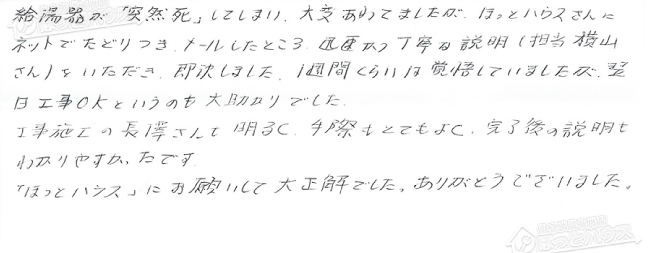 給湯器が「突然死」してしまい、大変あわてましたが、ほっとハウスさんに
ネットでたどりつき、メールしたところ、迅速かつ丁寧な説明(担当横山
さん)をいただき、即決しました。1週間くらいは覚悟していましたが、翌
日工事OKというのも大助かりでした。
工事施工の長澤さんも明るく、手際もとてもよく、完了後の説明も
わかりやすかったです。
「ほっとハウス」にお願いして大正解でした。ありがとうございました。
ほっとハウス